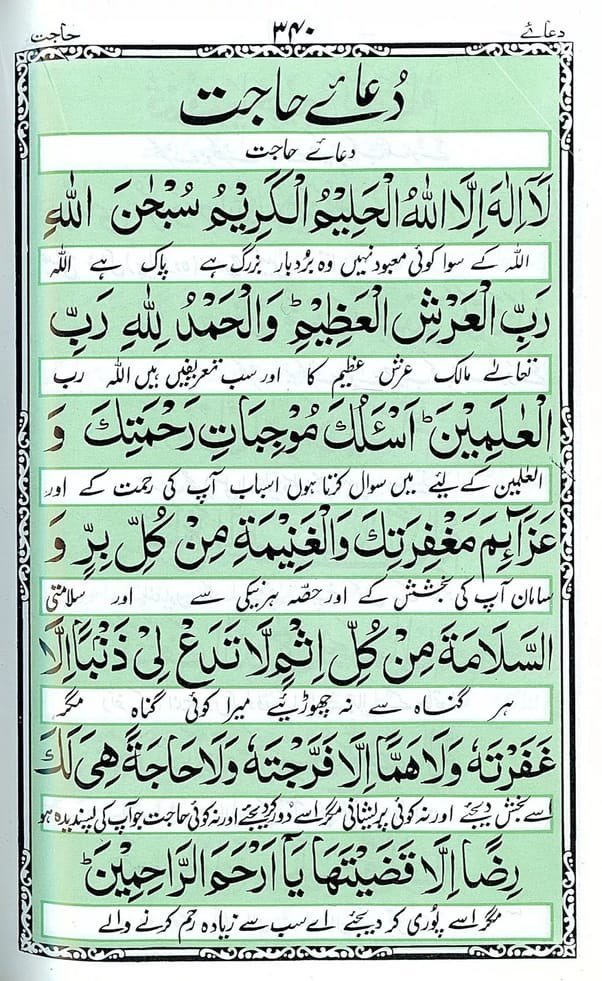 دعائے ۳۴۰ حاجت
دُعائے حاجت
دعائے حاجت
لَآ اِلٰهَ اِلَّا اللّٰهُ الْحَلِيْمُ الْكَرِيْمُ سُبْحٰنَ اللّٰهِ
اللہ کے سوا کوئی معبود نہیں وہ بُردبار بزرگ ہے پاک ہے اللہ
رَبِّ الْعَرْشِ الْعَظِيْمِ ؕ وَالْحَمْدُ لِلّٰهِ رَبِّ
تعالےٰ مالک عرش عظیم کا اور سب تعریفیں ہیں اللہ رب
الْعٰلَمِيْنَ ؕ اَسْئَلُكَ مُوْجِبَاتِ رَحْمَتِكَ وَ
العٰلمین کے لئے میں سوال کرتا ہوں اسباب آپ کی رحمت کے اور
عَزَآئِمَ مَغْفِرَتِكَ وَالْغَنِيْمَةَ مِنْ كُلِّ بِرٍّ وَ
سامان آپ کی بخشش کے اور حصّہ ہر نیکی سے اور سلامتی
السَّلَامَةَ مِنْ كُلِّ اِثْمٍ لَّا تَدَعْ لِيْ ذَنْۢبًا اِلَّا
ہر گناہ سے نہ چھوڑئیے میرا کوئی گناہ مگر
غَفَرْتَهٗ وَلَا هَمًّا اِلَّا فَرَّجْتَهٗ وَلَا حَاجَةً هِىَ لَكَ
اسے بخش دیجئے اور نہ کوئی پریشانی مگر اسے دور کردیجئے اور نہ کوئی حاجت جو آپ کی پسندیدہ ہو
رِضًا اِلَّا قَضَيْتَهَا يَآ اَرْحَمَ الرَّاحِمِيْنَ ؕ
مگر اسے پُوری کر دیجئے اے سب سے زیادہ رحم کرنے والے